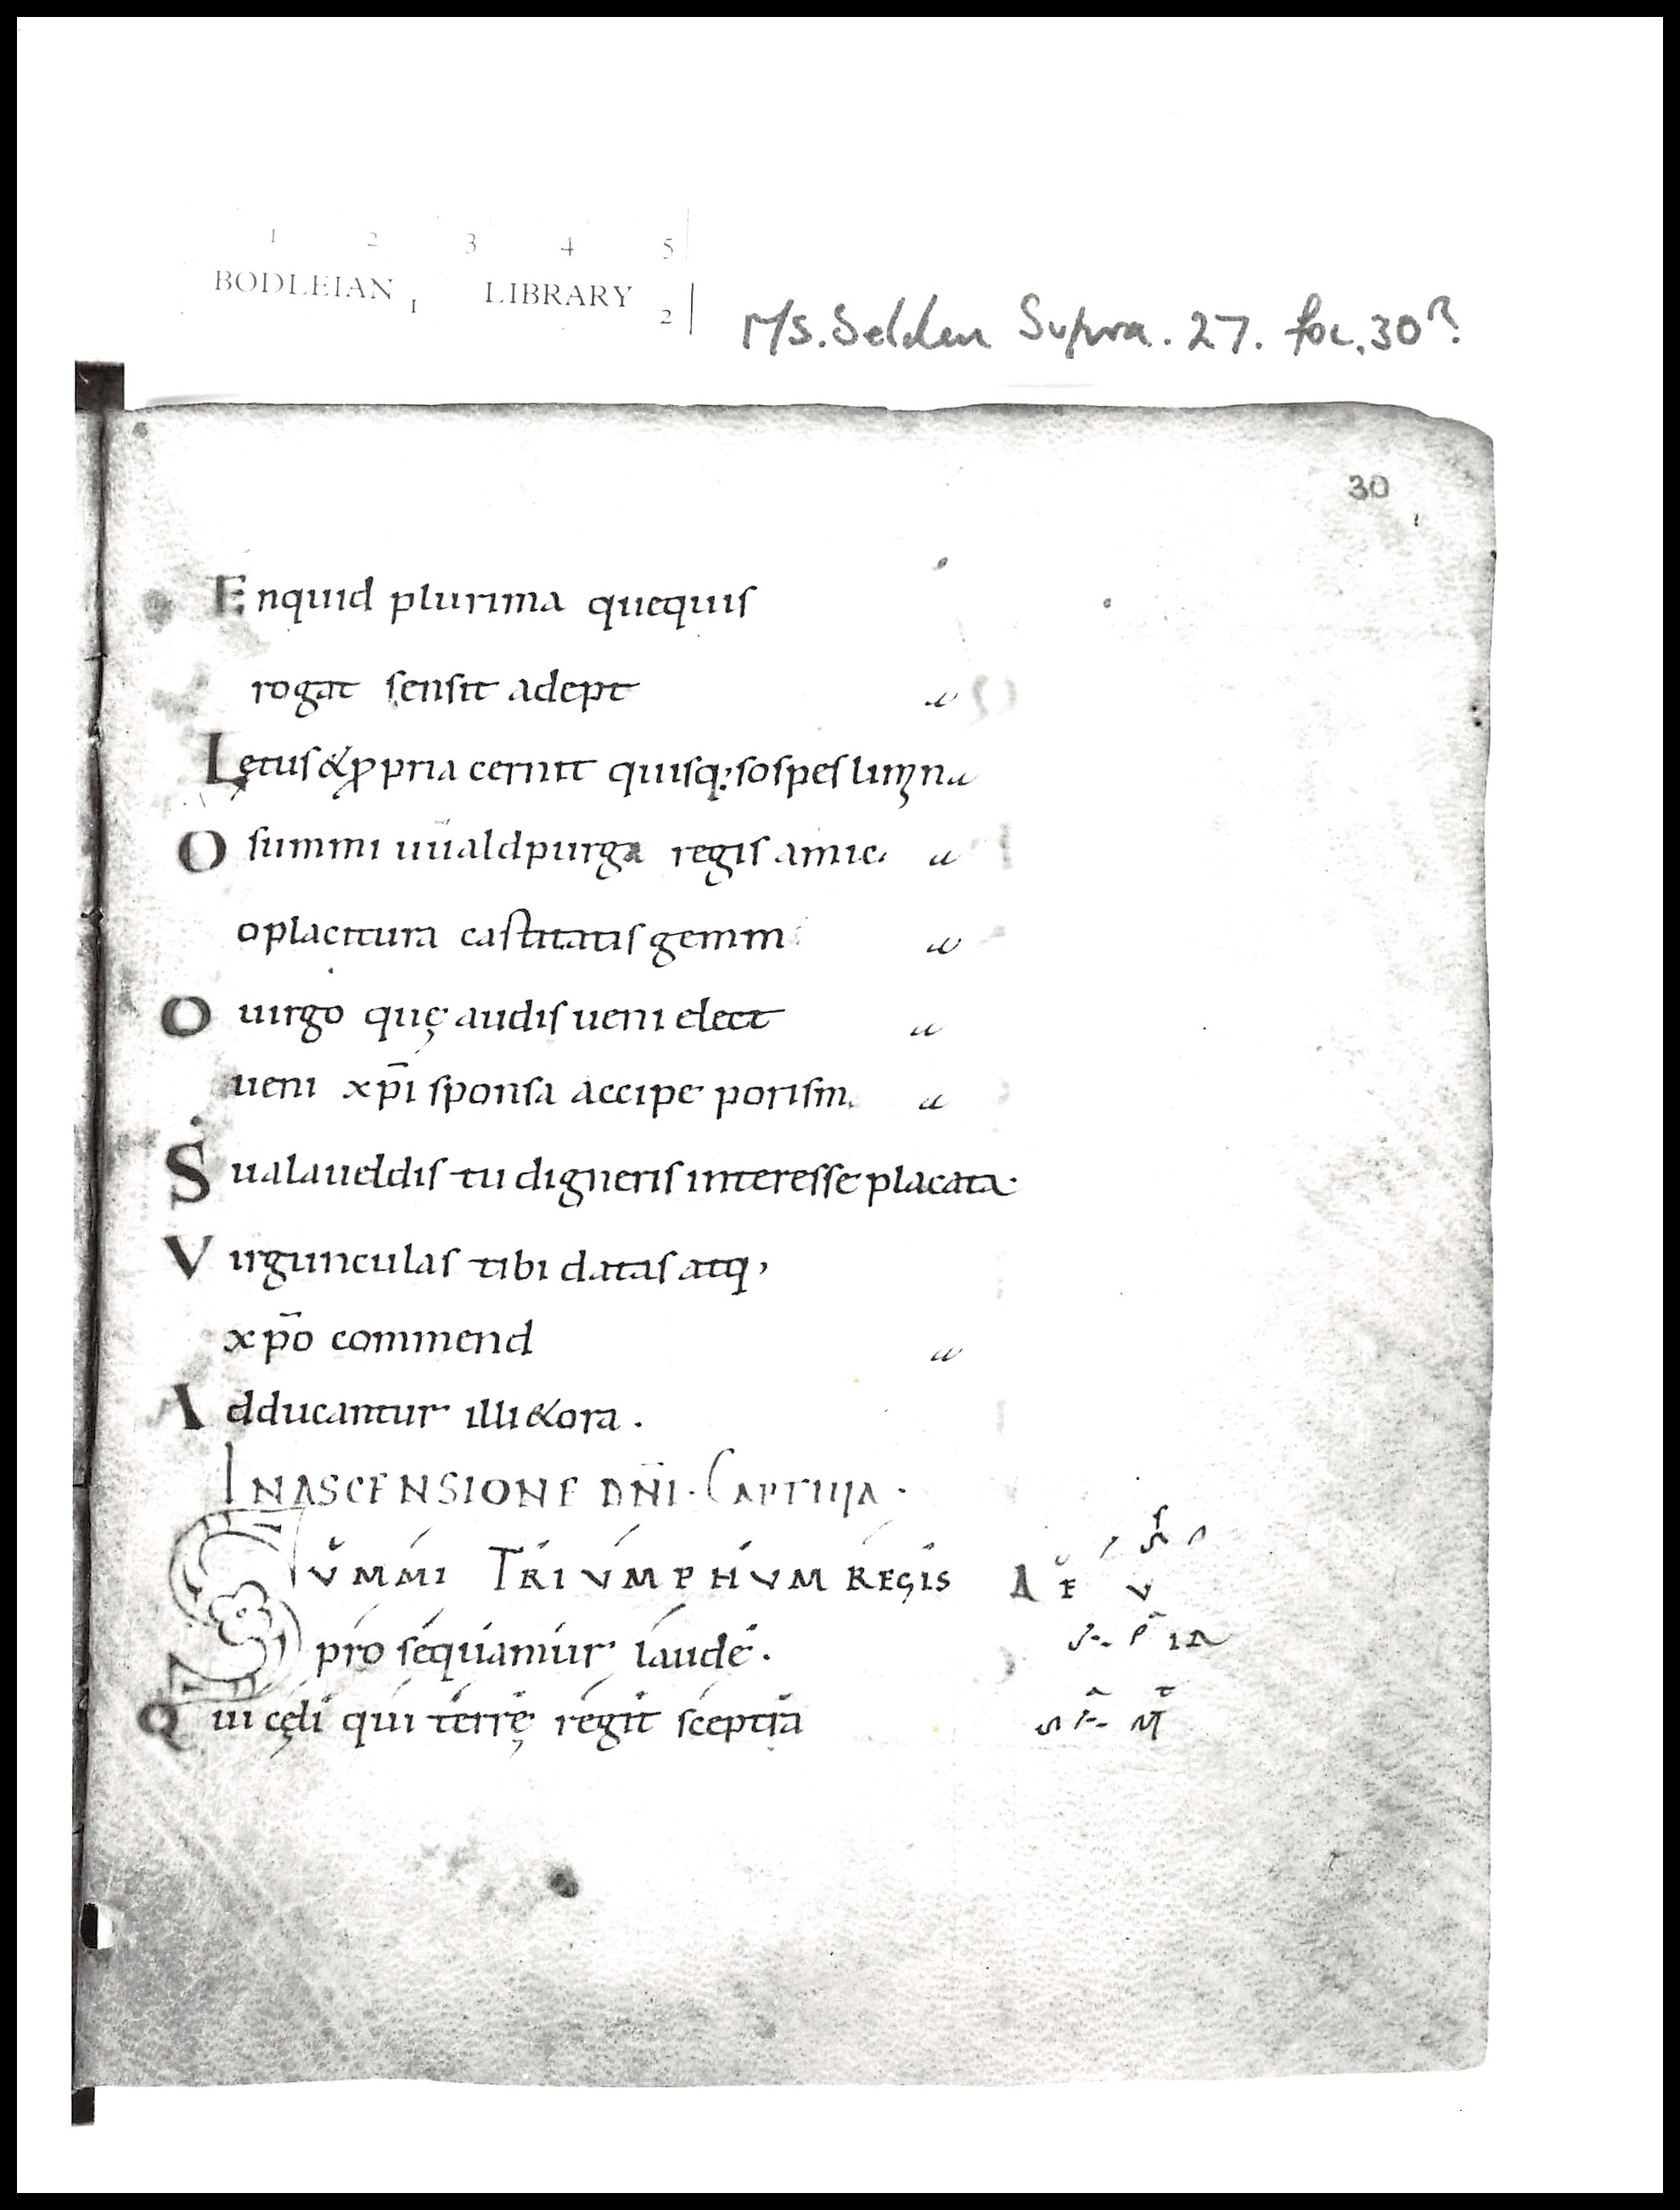 1 2 3 4 5
BODLEIAN 1 LIBRARY 2
MS. Selden Supra. 27. fol. 30R
30
Enquid plurima quequis
rogat sensit adept a
Lętus & ꝓpria cernit quisq; sospes limina
O summi uualdpurga regis amic a
o placitura castitatis gemm a
O uirgo quę audis ueni elect a
ueni xp̄i sponsa accipe porism a
Sua laueldis tu digneris interesse placata
Virgunculas tibi datas atq,
xp̄o commend a
Adducantur illi & ora .
IN ASCENSIONE DN̄I . CAPTIUA .
SUMMI TRIUMPHUM REGIS A E U
prosequamur laude .
Qui cęli qui terrę regit sceptra